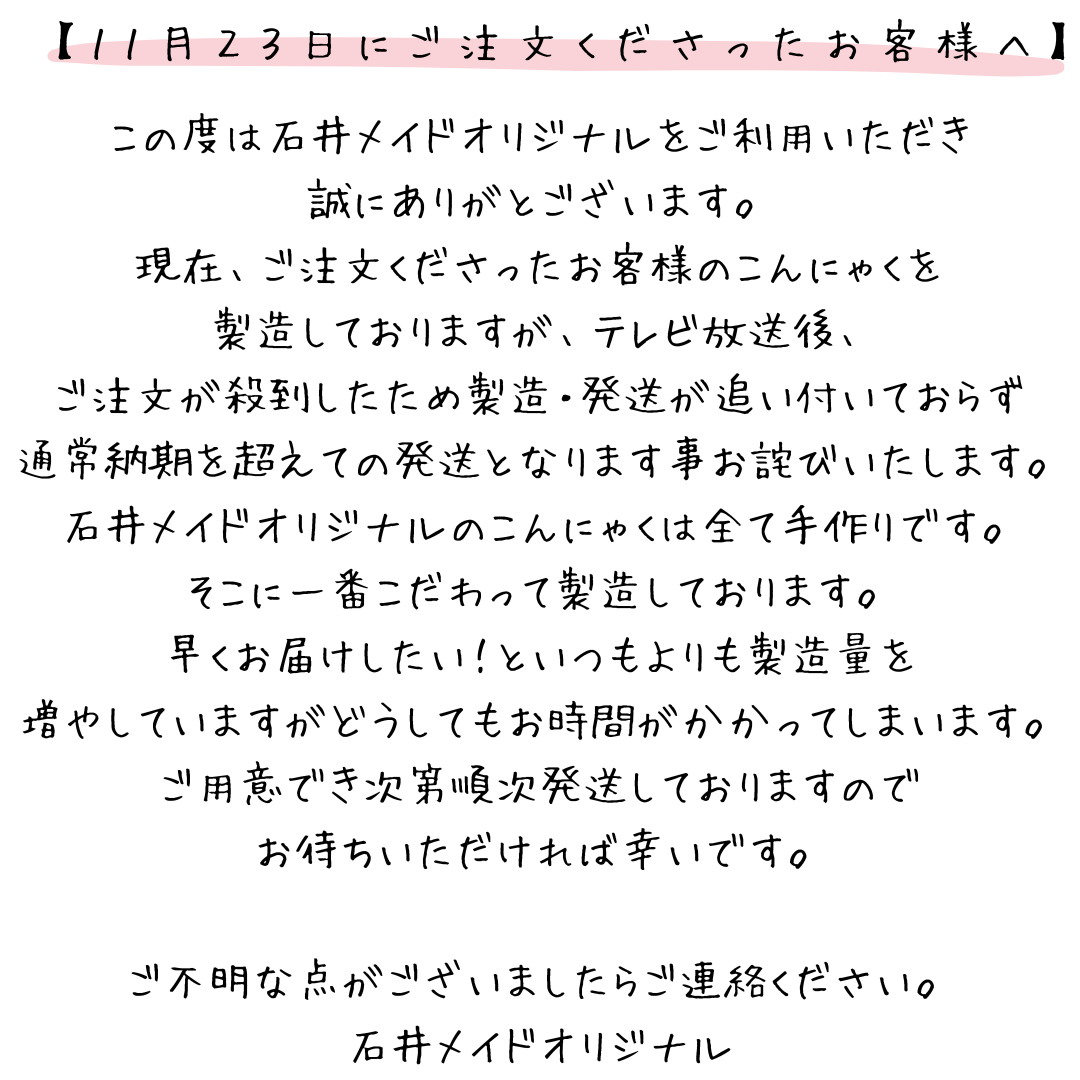 【11月23日にご注文くださったお客様へ】
この度は石井メイドオリジナルをご利用いただき
誠にありがとございます。
現在、ご注文くださったお客様のこんにゃくを
製造しておりますが、テレビ放送後、
ご注文が殺到したため製造・発送が追い付いておらず
通常納期を超えての発送となります事お詫びいたします。
石井メイドオリジナルのこんにゃくは全て手作りです。
そこに一番こだわって製造しております。
早くお届けしたい！といつもよりも製造量を
増やしていますがどうしてもお時間がかかってしまいます。
ご用意でき次第順次発送しておりますので
お待ちいただければ幸いです。
ご不明な点がございましたらご連絡ください。
石井メイドオリジナル